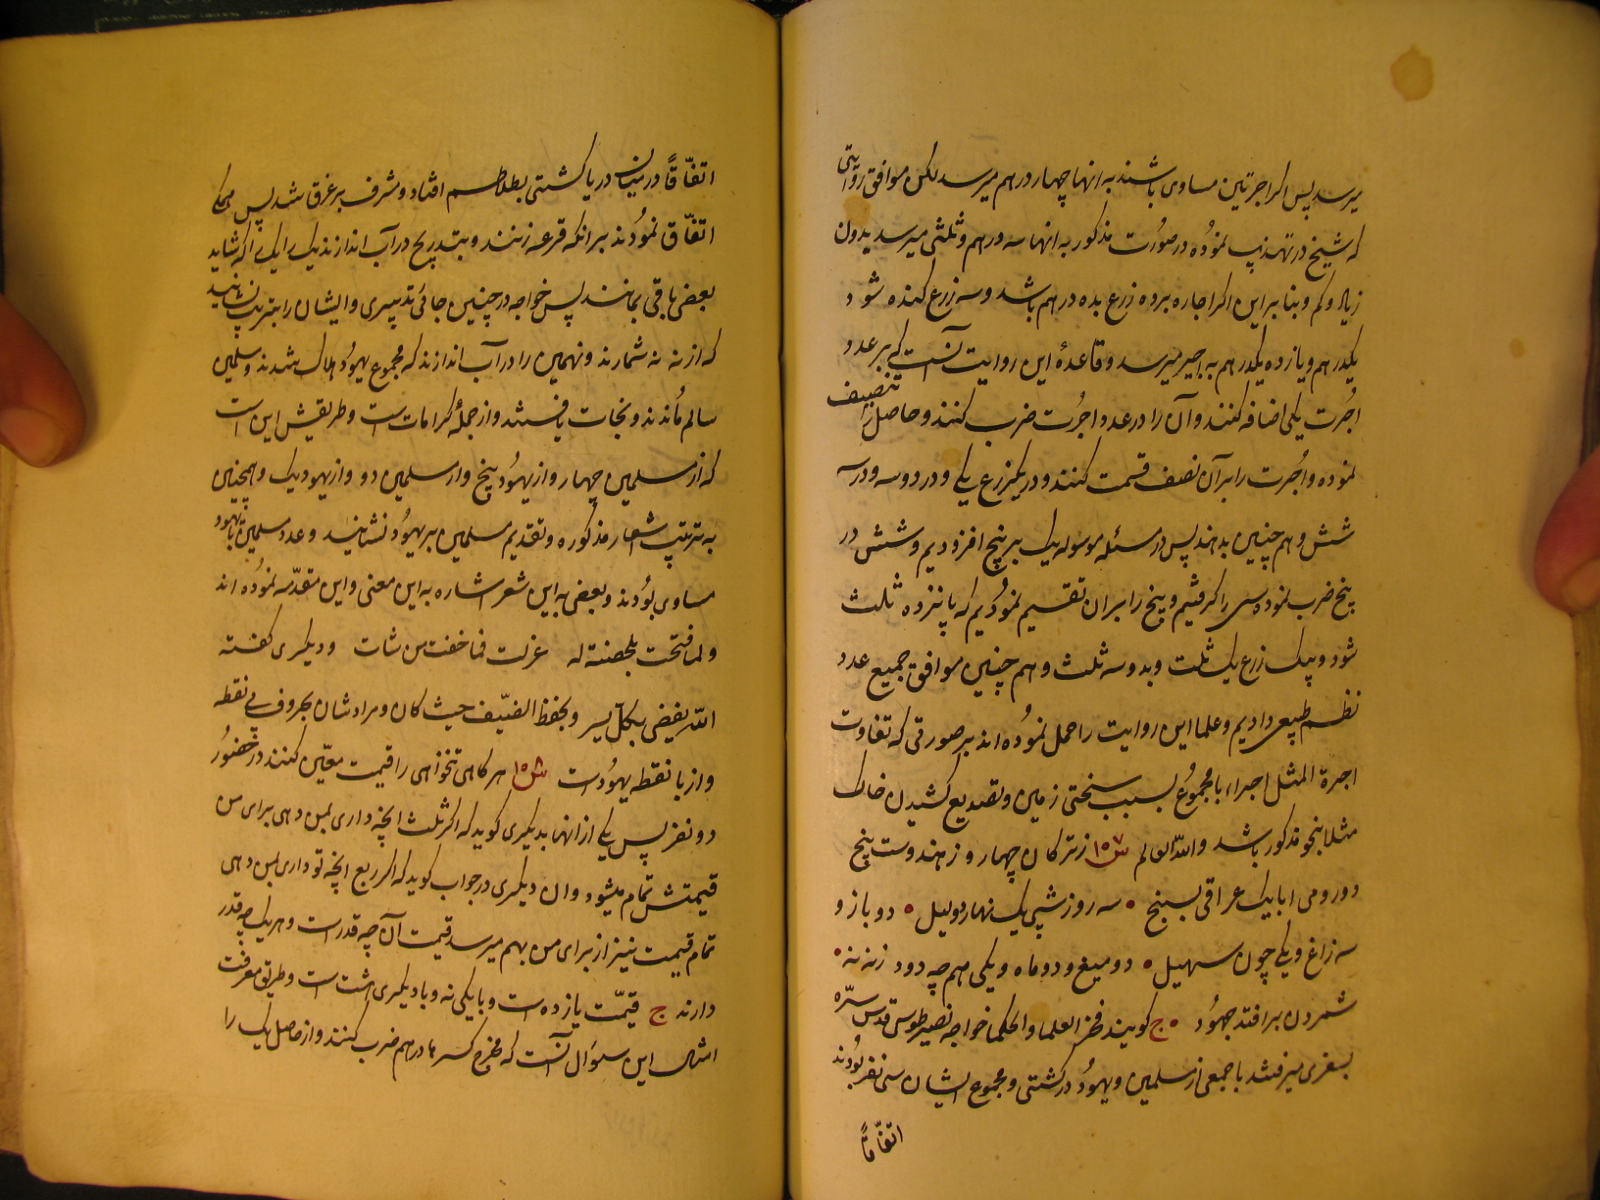 میرسد پس اکر اجرتین مساوی باشند به انها چهار درهم میرسد لکن موافق روایتی
که شیخ در تهذیب نموده در صورت مذکور به انها سه درهم و ثلثی میرسد بدون
زیاد و کم و بنا بر این اکر اجاره برده زرع بده درهم باشد و سه زرع کنده شود
یکدرهم و یازده یکدرهم به اجیر میرسد و قاعدهٔ این روایت آنست که بر عدد
اجرت یکی اضافه کنند و آن را در عدد اجرت ضرب کنند و حاصل را تنصیف
نموده و اجرت را بر آن نصف قسمت کنند و در یکزرع یکی و در دو سه و در سه
شش و هم چنین بدهند پس در مسئله موسوله یک بر پنج افزودیم و شش در
پنج ضرب نموده سی را کرفتیم و پنج را بران تقسیم نمودیم که پانزده ثلث
شود و بیک زرع یک ثلث و بدو سه ثلث و هم چنین موافق جمیع عدد
نظم طبیعی دادیم و علما این روایت را حمل نموده اند بر صورتی که تفاوت
اجرة المثل اجزاء با مجموع بسبب سختی زمین و تصدیع کشیدن خاک
مثلا بنحو مذکور باشد والله العالم س ١٥٧ ز ترکان چهار و ز هندوست پنج
دو رومی ابا یک عراقی بسنج • سه روز شبی یک نهار دو لیل • دو باز و
سه زاغ و یکی چون سهیل • دو میغ و دو ماه و یکی هم چه دود ز نه نه •
شمردن بر افتد جهود • ج کویند فخر العلما و الحکما خواجه نصیر طوسی قدس سره
بسفری میرفتند با جمعی از مسلمین و یهود در کشتی و مجموع ایشان سی نفر بودند
اتفاقاً
اتفاقاً در میان دریا کشتی بطلاطم افتاد و مشرف بر غرق شد پس همکی
اتفاق نمودند بر انکه قرعه زنند و بتدریج در آب اندازند یک را یک را که شاید
بعضی باقی بمانند پس خواجه در چنین جائی تدبیری و ایشان را بترتیب نشانید
که از نه نه شمارند و نهمین را در آب اندازند که مجموع یهود هلاک شدند و مسلمین
سالم ماندند و نجات یافتند و از جملهٔ کرامات است و طریقش این است
که از مسلمین چهار و از یهود پنج و از مسلمین دو و از یهود یک و همچنین
به ترتیب اشعار مذکوره و تقدیم مسلمین بر یهود نشانید و عدد مسلمین با یهود
مساوی بودند و بعضی به این شعر اشاره به این معنی و این مقدّسه نموده اند
ولما فتحت بلحضنة له غزلت فما خفت من شات و دیکری کفته
الله یقضی بکل یسر و یحفظ الضیّف حیث کان و مرادشان بحروف بی نقطه
و از با نقطه یهود است س ١٥٨ هر کاهی تخواهی را قیمت معین کنند در حضور
دو نفر پس یکی از انها بدیکری کوید که اکر ثلث انچه داری بمن دهی برای من
قیمتش تمام میشود و ان دیکری در جواب کوید که اکر ربع انچه تو داری بمن دهی
تمام قیمت نیز از برای من بهم میرسد قیمت آن چه قدر است و هر یک چه قدر
دارند ج قیمّت یازده است و با یکی نه و با دیکری هشت است و طریق معرفت
امثال این سؤال آنست که مخرج کسرها در هم ضرب کنند و از حاصل یک را